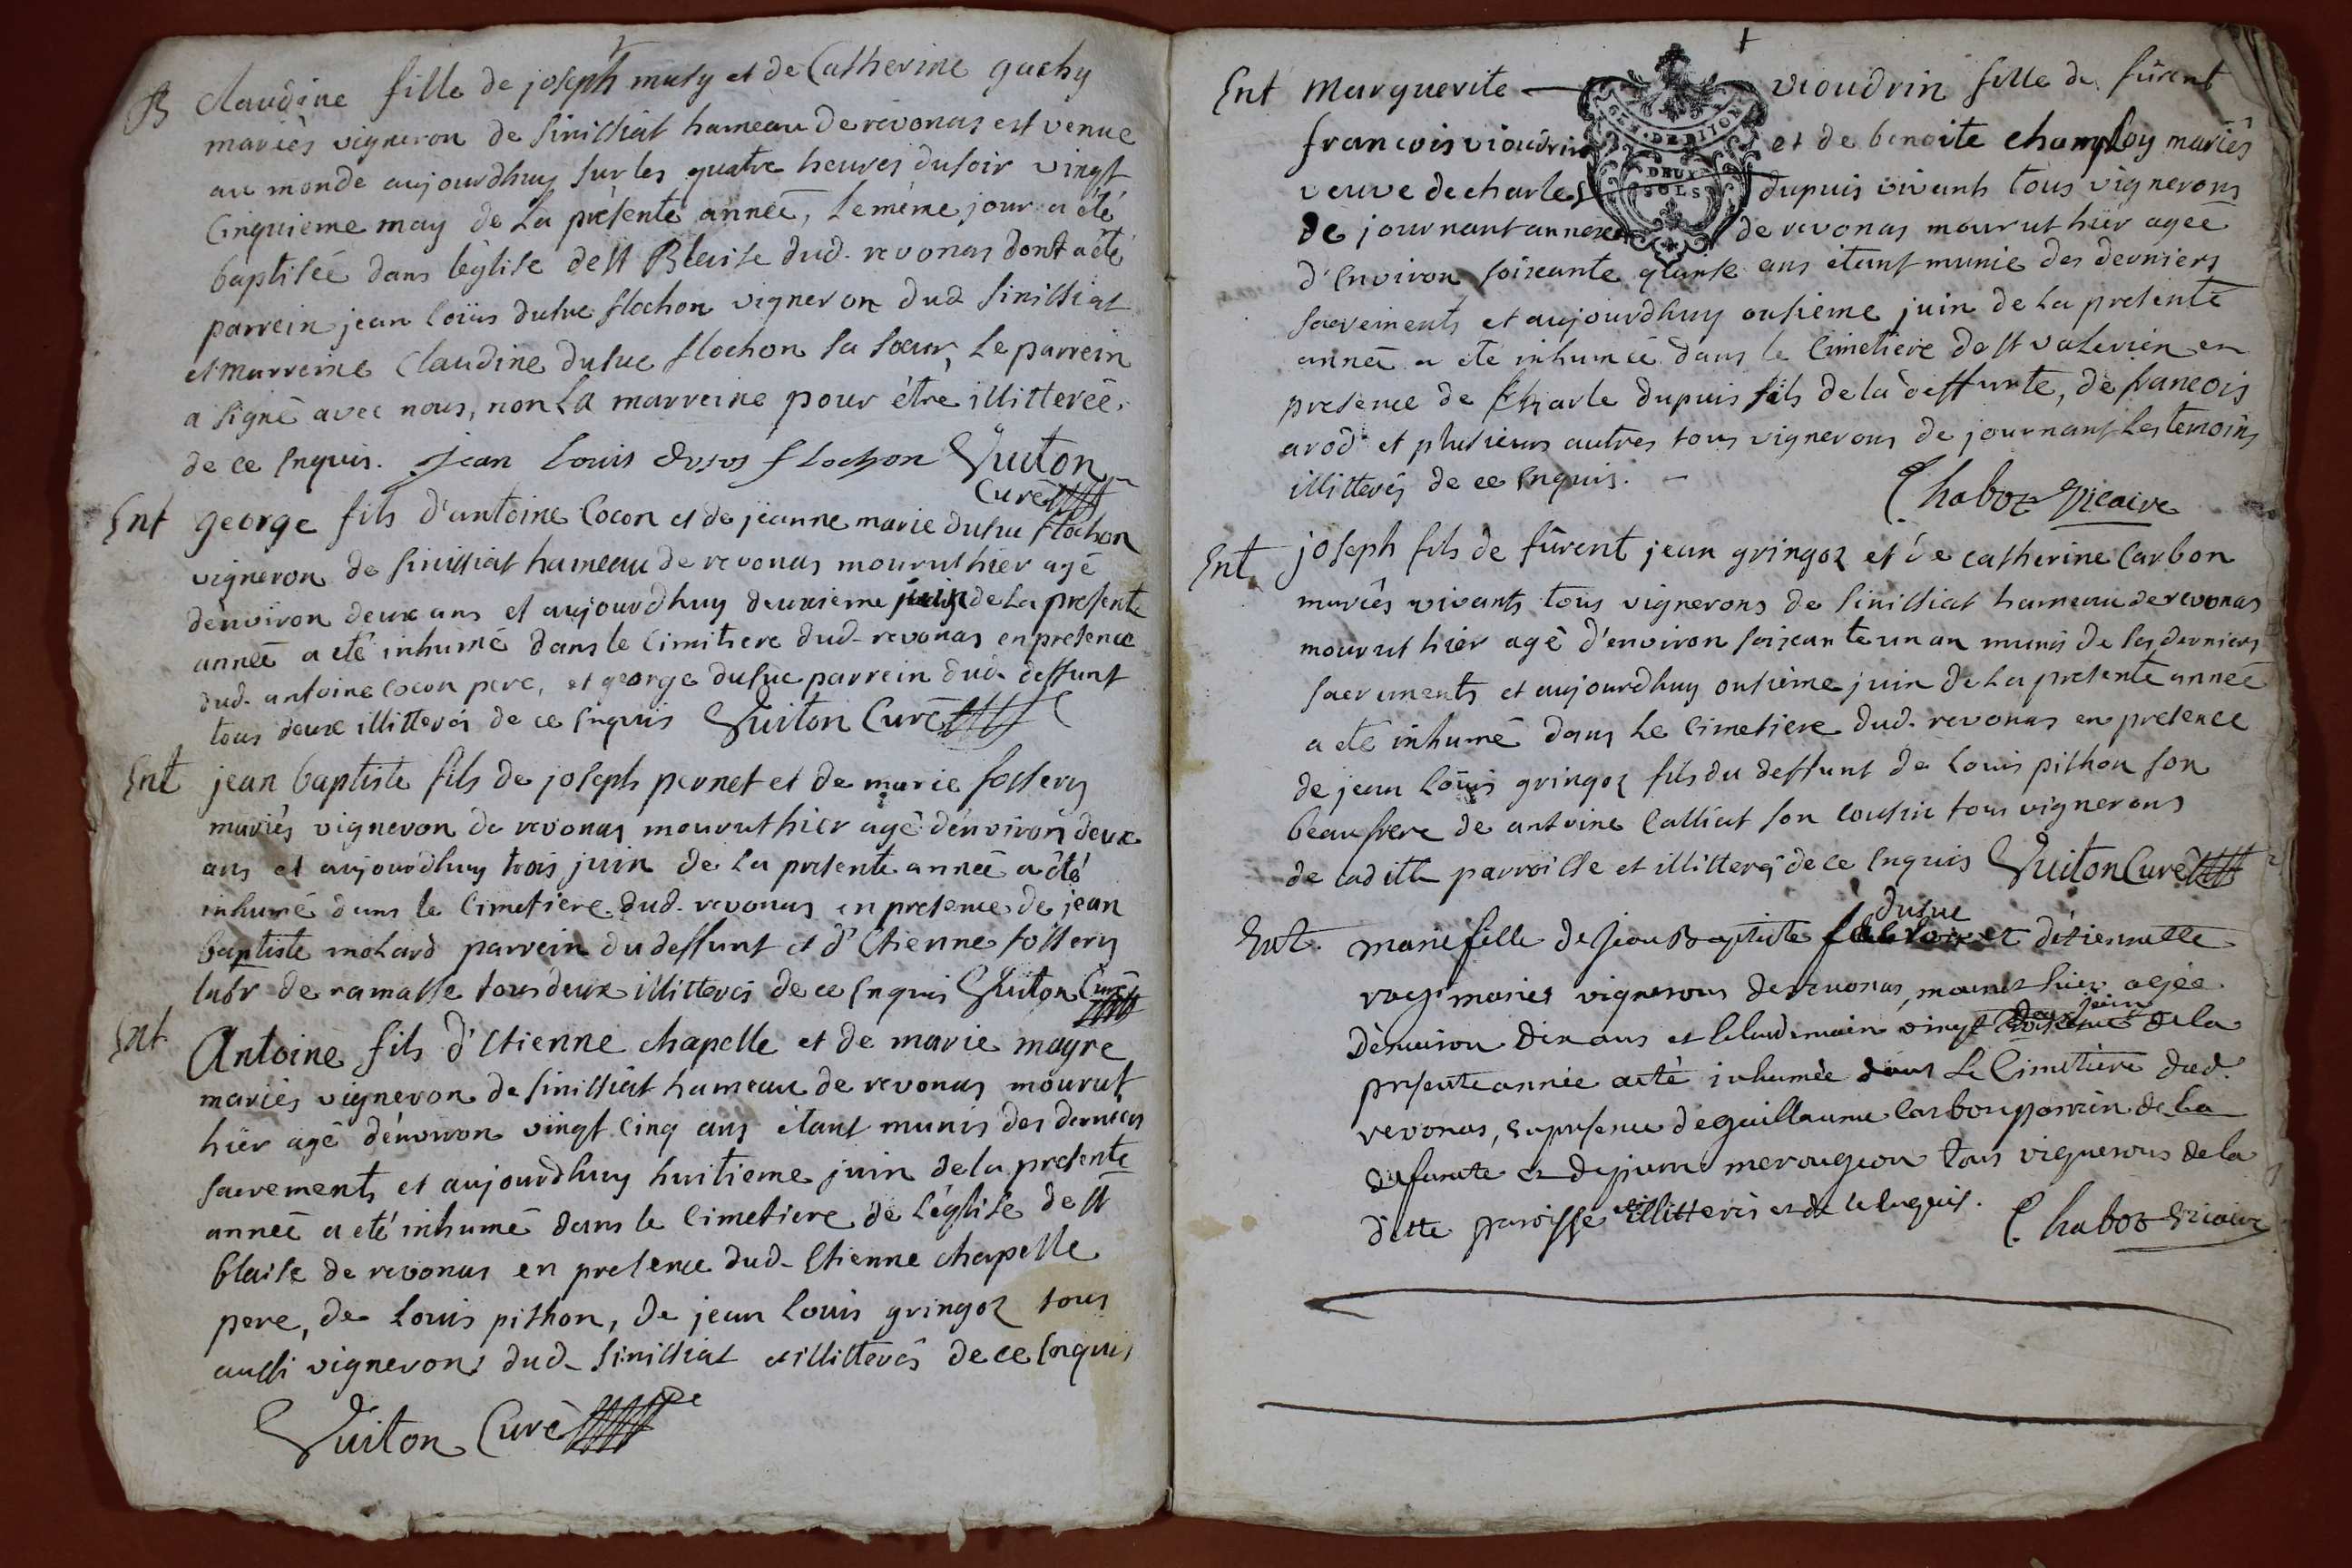 B Claudine fille de joseph musy et de Catherine gachy
mariès vigneron de sinissiat hameau de revonas est venue
au monde aujourdhuy sur les quatre heures du soir vingt
cinquieme may de la présente année, le même jour a été
baptiséé dans l'église de st Blaise dud. revonas dont a été
parrein jean loüis dusuc flochon vigneron dud sinissiat
et marreine Claudine dusuc flochon sa soeur, le parrein
a signé avec nous, non la marreine pour être illitereé.
de ce enquis. jean louis dusus flochon Guiton
Curé
Ent george fils d'antoine Cocon et de jeanne marie dusuc flochon
vigneron de sinissiat hameau de revonas mourut hier agé
d'environ deux ans et aujourdhuy deuxieme juin de la presente
année a eté inhumé dans le cimitiere dud. revonas en presence
dud. antoine cocon pere, et george dusuc parrein dud. deffunt
tous deux illitterés de ce enquis Guiton Curé
Ent jean baptiste fils de joseph pernet et de marie sossery
mariès vigneron de revonas mourut hier agé d'environ deux
ans et aujourdhuy trois juin de la presente année a été
inhumé dans le cimetiere dud. revonas en presence de jean
baptiste mohard parrein du deffunt et d'Etienne sossery
labr de ramasse tous deux illitterés de ce enquis Guiton Curé
Ent Antoine fils d'Etienne chapelle et de marie mayre
mariés vigneron de sinissiat hameau de revonas mourut
hier agé d'environ vingt cinq ans étant munis des derniers
sacrements et aujourdhuy huitieme juin de la presente
année a eté inhumé dans le cimetiere de l'église de st
blaise de revonas en presence dud. Etienne chapelle
pere, de louis pithon, de jean louis gringoz tous
aussi vignerons dud. sinissiat et illitterés de ce enquis
Guiton Curé
Ent Marguerite vioudrin fille de fûrent
francois vioudrin et de benoite champloy mariés
GEN. DE DIJON
DEUX SOLS
veuve de charles dupuis vivants tous vignerons
de journant annexe de revonas mourut hier ageé
d'environ soixante quinse ans étant munie des derniers
sacrements et aujourdhuy onsieme juin de la presente
année a eté inhumée dans le cimetiere de st valerien en
presence de Charle dupuis fils de la deffunte, de francois
arod et plusieurs autres tous vignerons de journant les temoins
illitterés de ce enquis.
Chaboz Vicaire
Ent joseph fils de fûrent jean gringoz et de catherine Carbon
mariés vivants tous vignerons de sinissiat hameau de revonas
mourut hier agé d'environ soixante un an munis de ses derniers
sacrements et aujourdhuy onsieme juin de la presente année
a eté inhumé dans le cimetiere dud. revonas en presence
de jean loüis gringoz fils du deffunt de louis pithon son
beaufrere de antoine Calliat son cousin tous vignerons
de ladite parroisse et illitterés de ce enquis Guiton Curé
Ent. marie fille de jean Baptiste dusuc et d'étiennette
mariés vignerons de revonas, mourut hier agée
d'environ dix ans et le lendemain vingt deux juin de la
presente année a eté inhumée dans le Cimetière dud.
revonas, en presence de guillaume Carbon parrein de la
defunte et de pierre merougeon tous vignerons de la
ditte paroisse illitterés et de ce enquis. Chaboz Vicaire